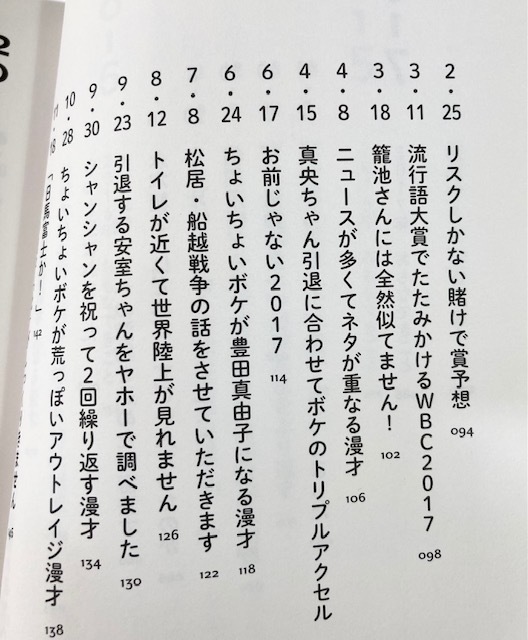 2・25 リスクしかない賭けで賞予想 094
3・11 流行語大賞でたたみかけるWBC2017 098
3・18 籠池さんには全然似てません! 102
4・8 ニュースが多くてネタが重なる漫才 106
4・15 真央ちゃん引退に合わせてボケのトリプルアクセル
6・17 お前じゃない2017 114
6・24 ちょいちょいボケが豊田真由子になる漫才 118
7・8 松居・船越戦争の話をさせていただきます 122
8・12 トイレが近くて世界陸上が見れません 126
9・23 引退する安室ちゃんをヤホーで調べました 130
9・30 シャンシャンを祝って2回繰り返す漫才 134
10・28 ちょいちょいボケが荒っぽいアウトレイジ漫才 138
11・18 「日馬富士か!」 142